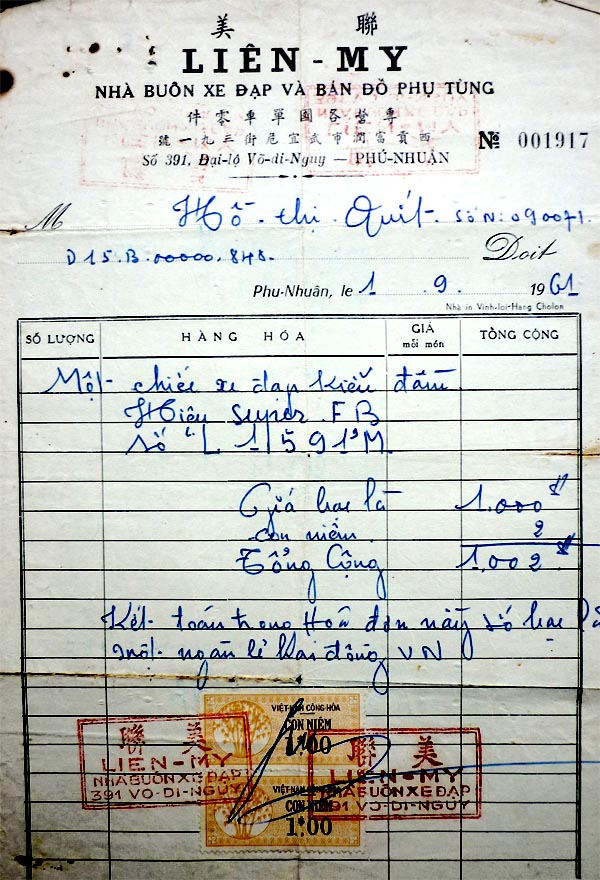 美 聯
LIÊN - MY
NHÀ BUÔN XE ĐẠP VÀ BÁN ĐỒ PHỤ TÙNG
件零車單國各營專
號一九三街尼宜武市潤富貢西
Số 391, Đại-lộ Võ-di-Nguy — PHÚ-NHUẬN
№ 001917
M Hồ thị Quít. Số N: 090071.
D15.B.00000.848. Doit
Phu-Nhuân, le 1 . 9 . 1961
Nhà in Vinh-loi-Hang Cholon
SỐ LƯỢNG HÀNG HÓA GIÁ mỗi món TỔNG CỘNG
Một chiếc xe đạp kiểu đầm
Hiệu Super FB
Số "L 11591 M
Giá bạc là 1.000$
con niêm 2
Tổng Cộng 1.002$
Kết toán trong Hoá đơn này số bạc là
một ngàn lẻ hai đồng VN
VIỆT-NAM CỘNG-HÒA
CON NIÊM
1$00
聯 美
LIEN-MY
NHÀ BUÔN XE ĐẠP
391 VO-DI-NGUY
聯 美
LIEN-MY
NHÀ BUÔN XE ĐẠP
391 VO-DI-NGUY
VIỆT-NAM CỘNG-HÒA
CON NIÊM
1$00